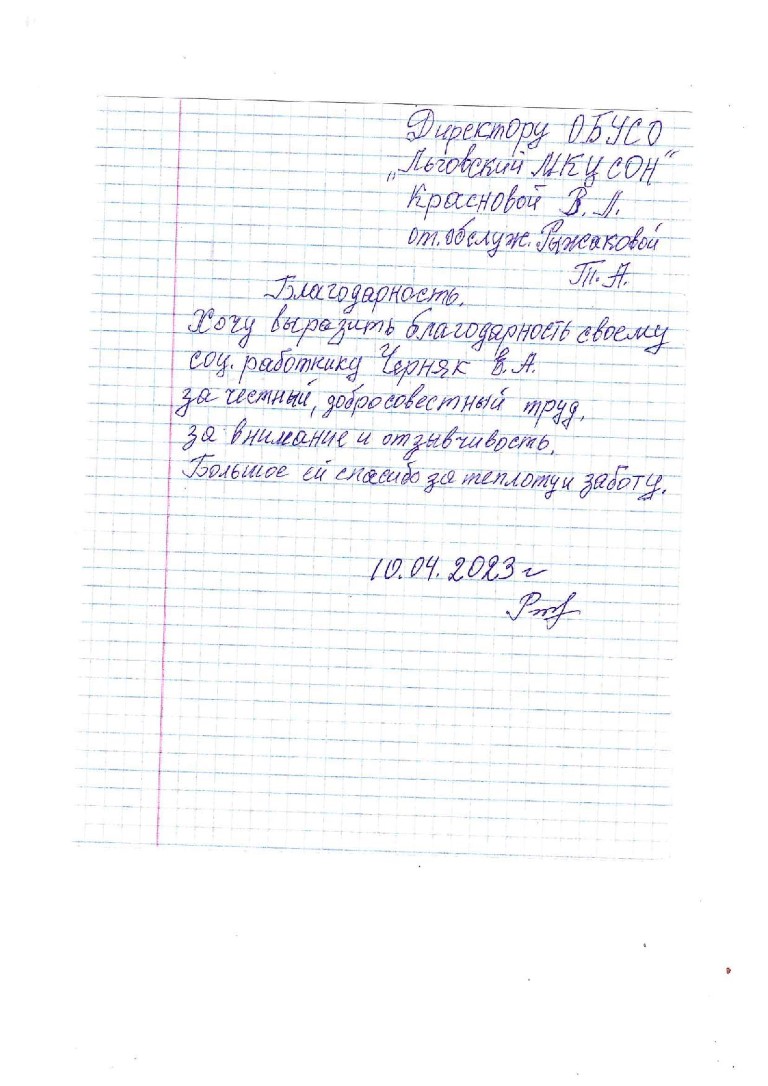 Директору ОБУСО
„Льговский МКЦСОН"
Красновой В. Л.
от. обслуж. Рыжаковой
Т. А.
Благодарность.
Хочу выразить благодарность своему
соц. работнику Черняк Е. А.
за честный, добросовестный труд,
за внимание и отзывчивость.
Большое ей спасибо за теплоту и заботу.
10.04.2023 г